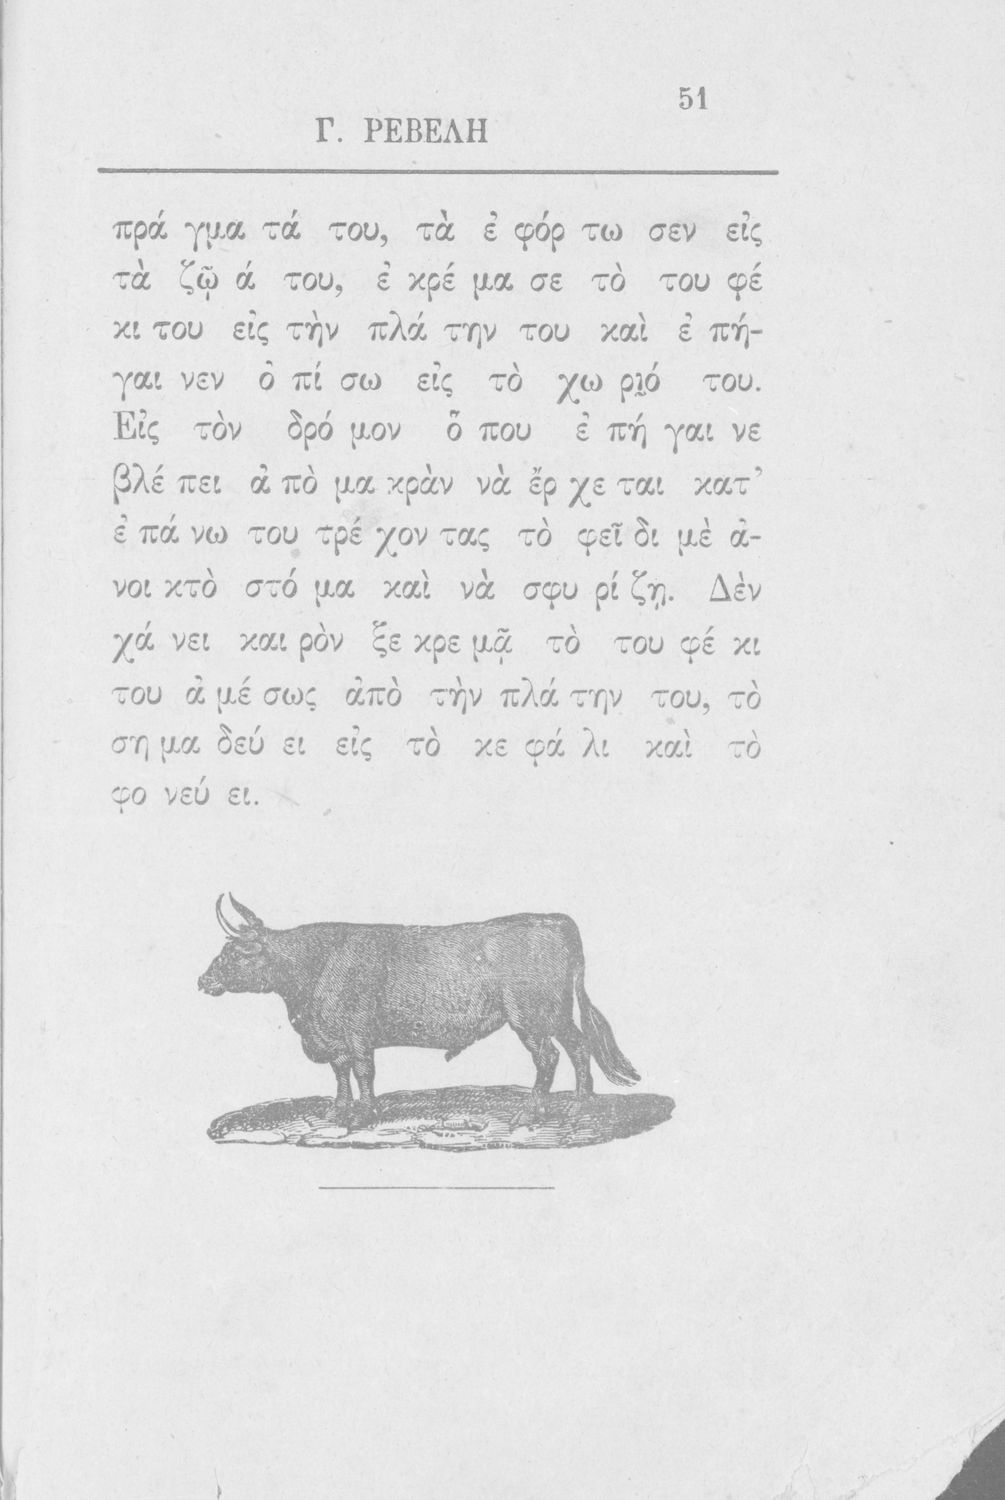 51
Γ. ΡΕΒΕΛΗ
πρά γμα τά του, τὰ ἐ φόρ τω σεν εἰς
τὰ ζῷ ά του, ἐ κρέ μα σε τὸ του φέ
κι του εἰς τὴν πλά την του καὶ ἐ πή-
γαι νεν ὀ πί σω εἰς τὸ χω ριό του.
Εἰς τὸν δρό μον ὅ που ἐ πή γαι νε
βλέ πει ἀ πὸ μα κρὰν νὰ ἔρ χε ται κατ’
ἐ πά νω του τρέ χον τας τὸ φεῖ δι μὲ ἀ-
νοι κτὸ στό μα καὶ νὰ σφυ ρί ζῃ. Δὲν
χά νει και ρὸν ξε κρε μᾷ τὸ του φέ κι
του ἀ μέ σως ἀπὸ τὴν πλά την του, τὸ
ση μα δεύ ει εἰς τὸ κε φά λι καὶ τὸ
φο νεύ ει.